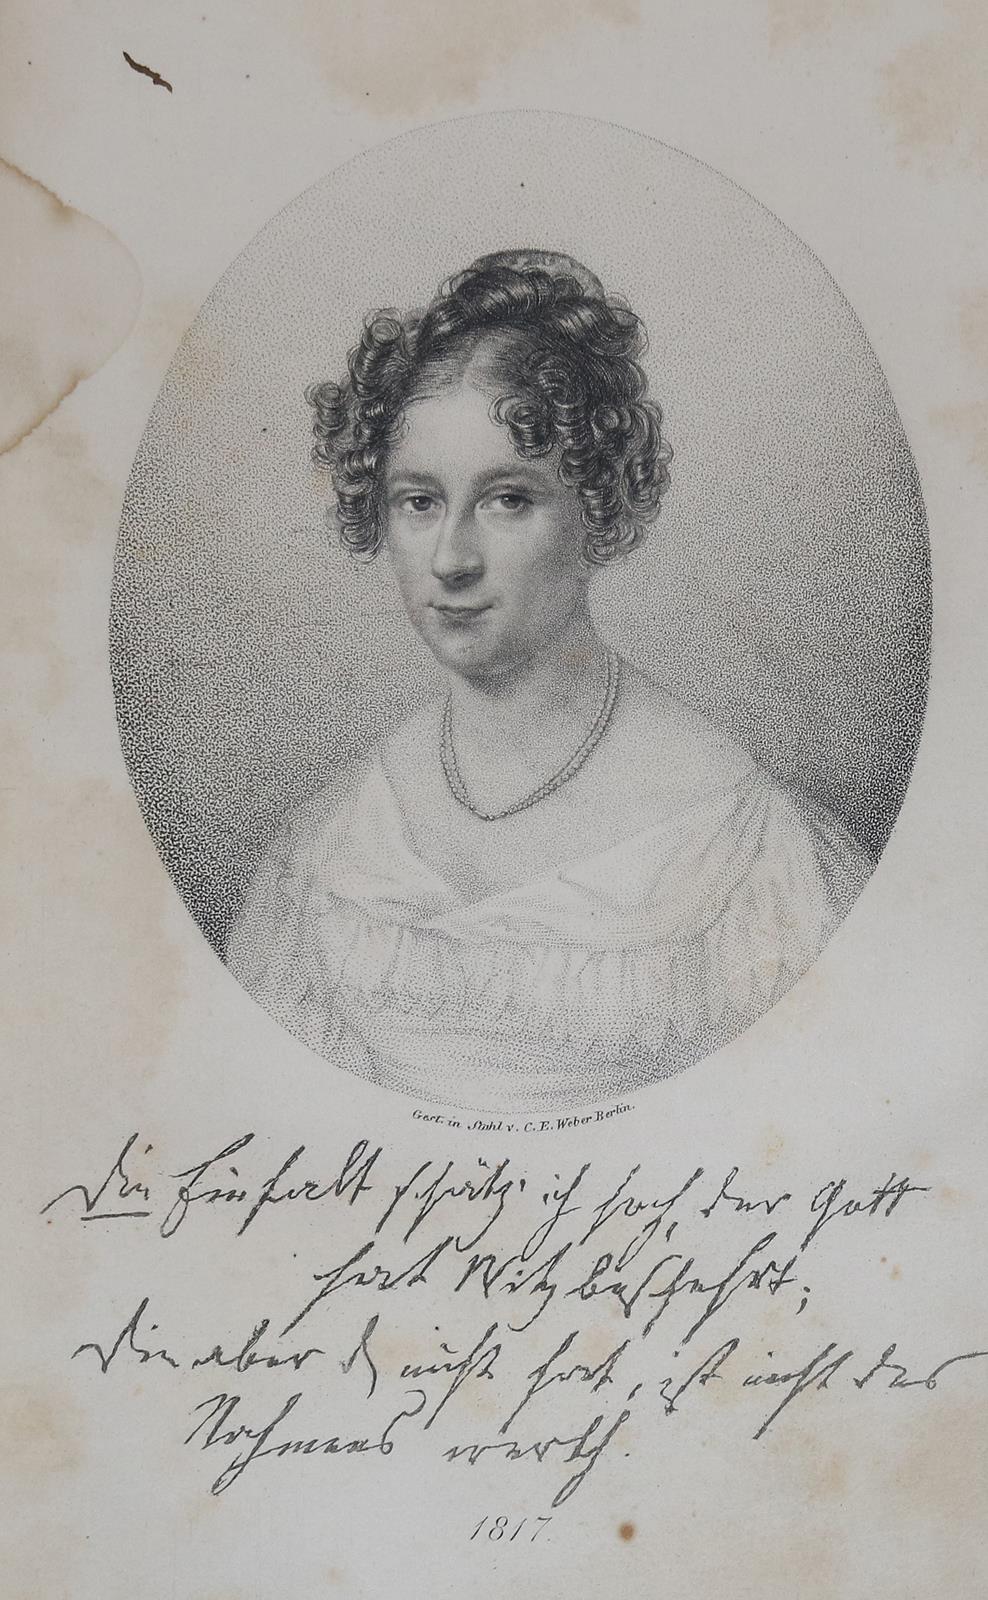 Gest. in Stahl v. C. E. Weber Berlin.
Die Einfalt schätz' ich hoch, der Gott
hat Witz bescheehrt;
Die aber d nicht hat, ist nicht des
Nahmens werth.
1817.